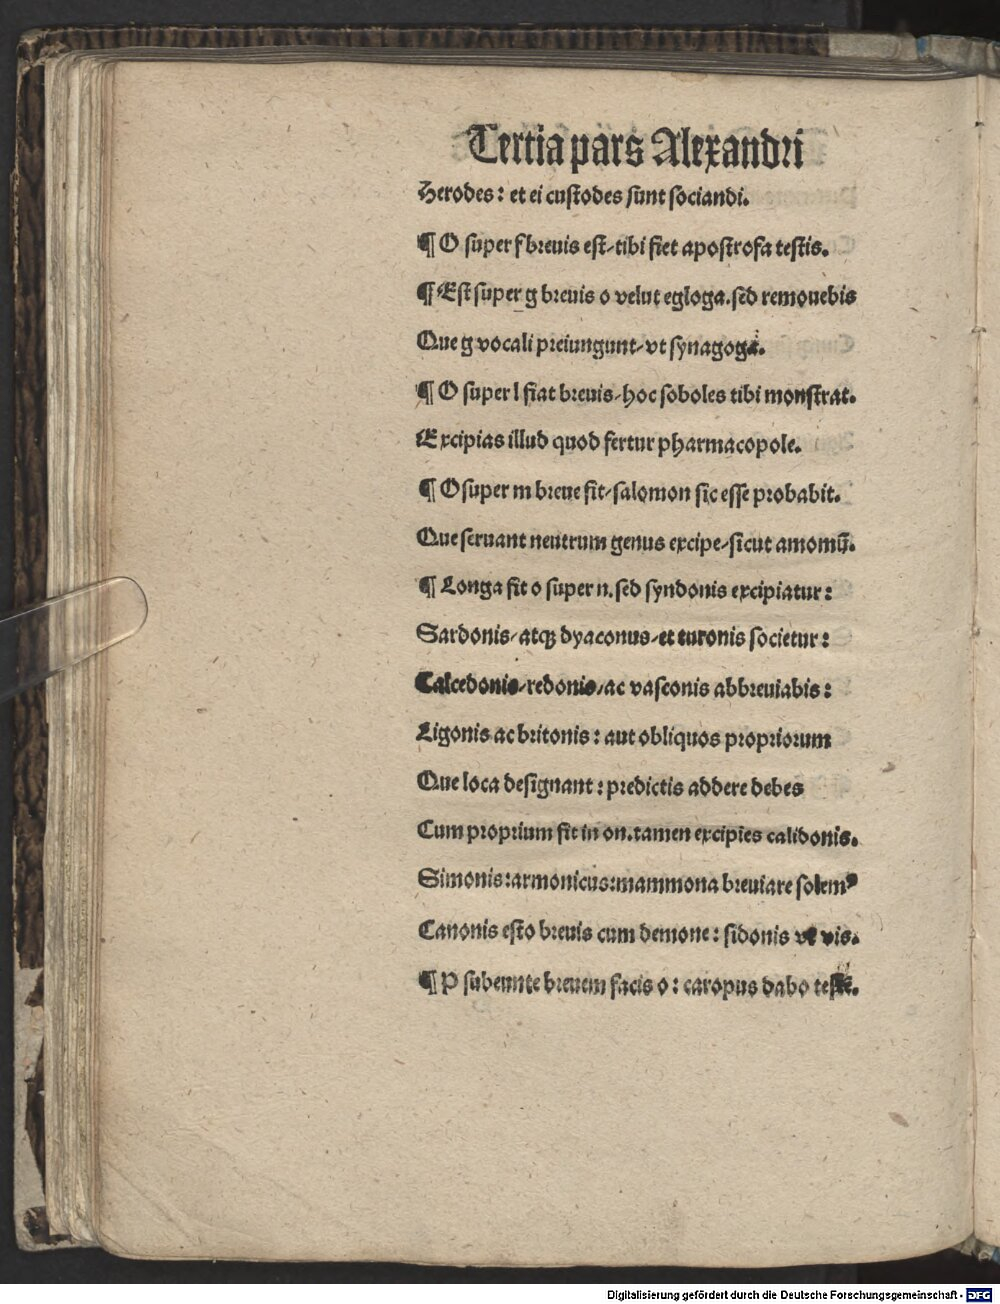 Tertia pars Alexandri
Herodes: et ei custodes sunt sociandi.
¶ O super f breuis est/tibi fiet apostrofa testis.
¶ Est super g breuis o velut egloga. sed remouebis
Que g vocali preiungunt/vt synagoga.
¶ O super l fiat breuis/hoc soboles tibi monstrat.
Excipias illud quod fertur pharmacopole.
¶ O super m breue fit/salomon sic esse probabit.
Que seruant neutrum genus excipe/sicut amomū.
¶ Longa fit o super n. sed syndonis excipiatur:
Sardonis/atqꝫ dyaconus/et turonis societur:
Calcedonis/redonis/ac vasconis abbreuiabis:
Ligonis ac britonis: aut obliquos propriorum
Que loca designant: predictis addere debes
Cum proprium fit in on. tamen excipies calidonis.
Simonis: armonicus: mammona breuiare solemꝰ
Canonis esto breuis cum demone: sidonis vt vis.
¶ P subeunte breuem facis o: caropus dabo testē.
Digitalisierung gefördert durch die Deutsche Forschungsgemeinschaft - DFG